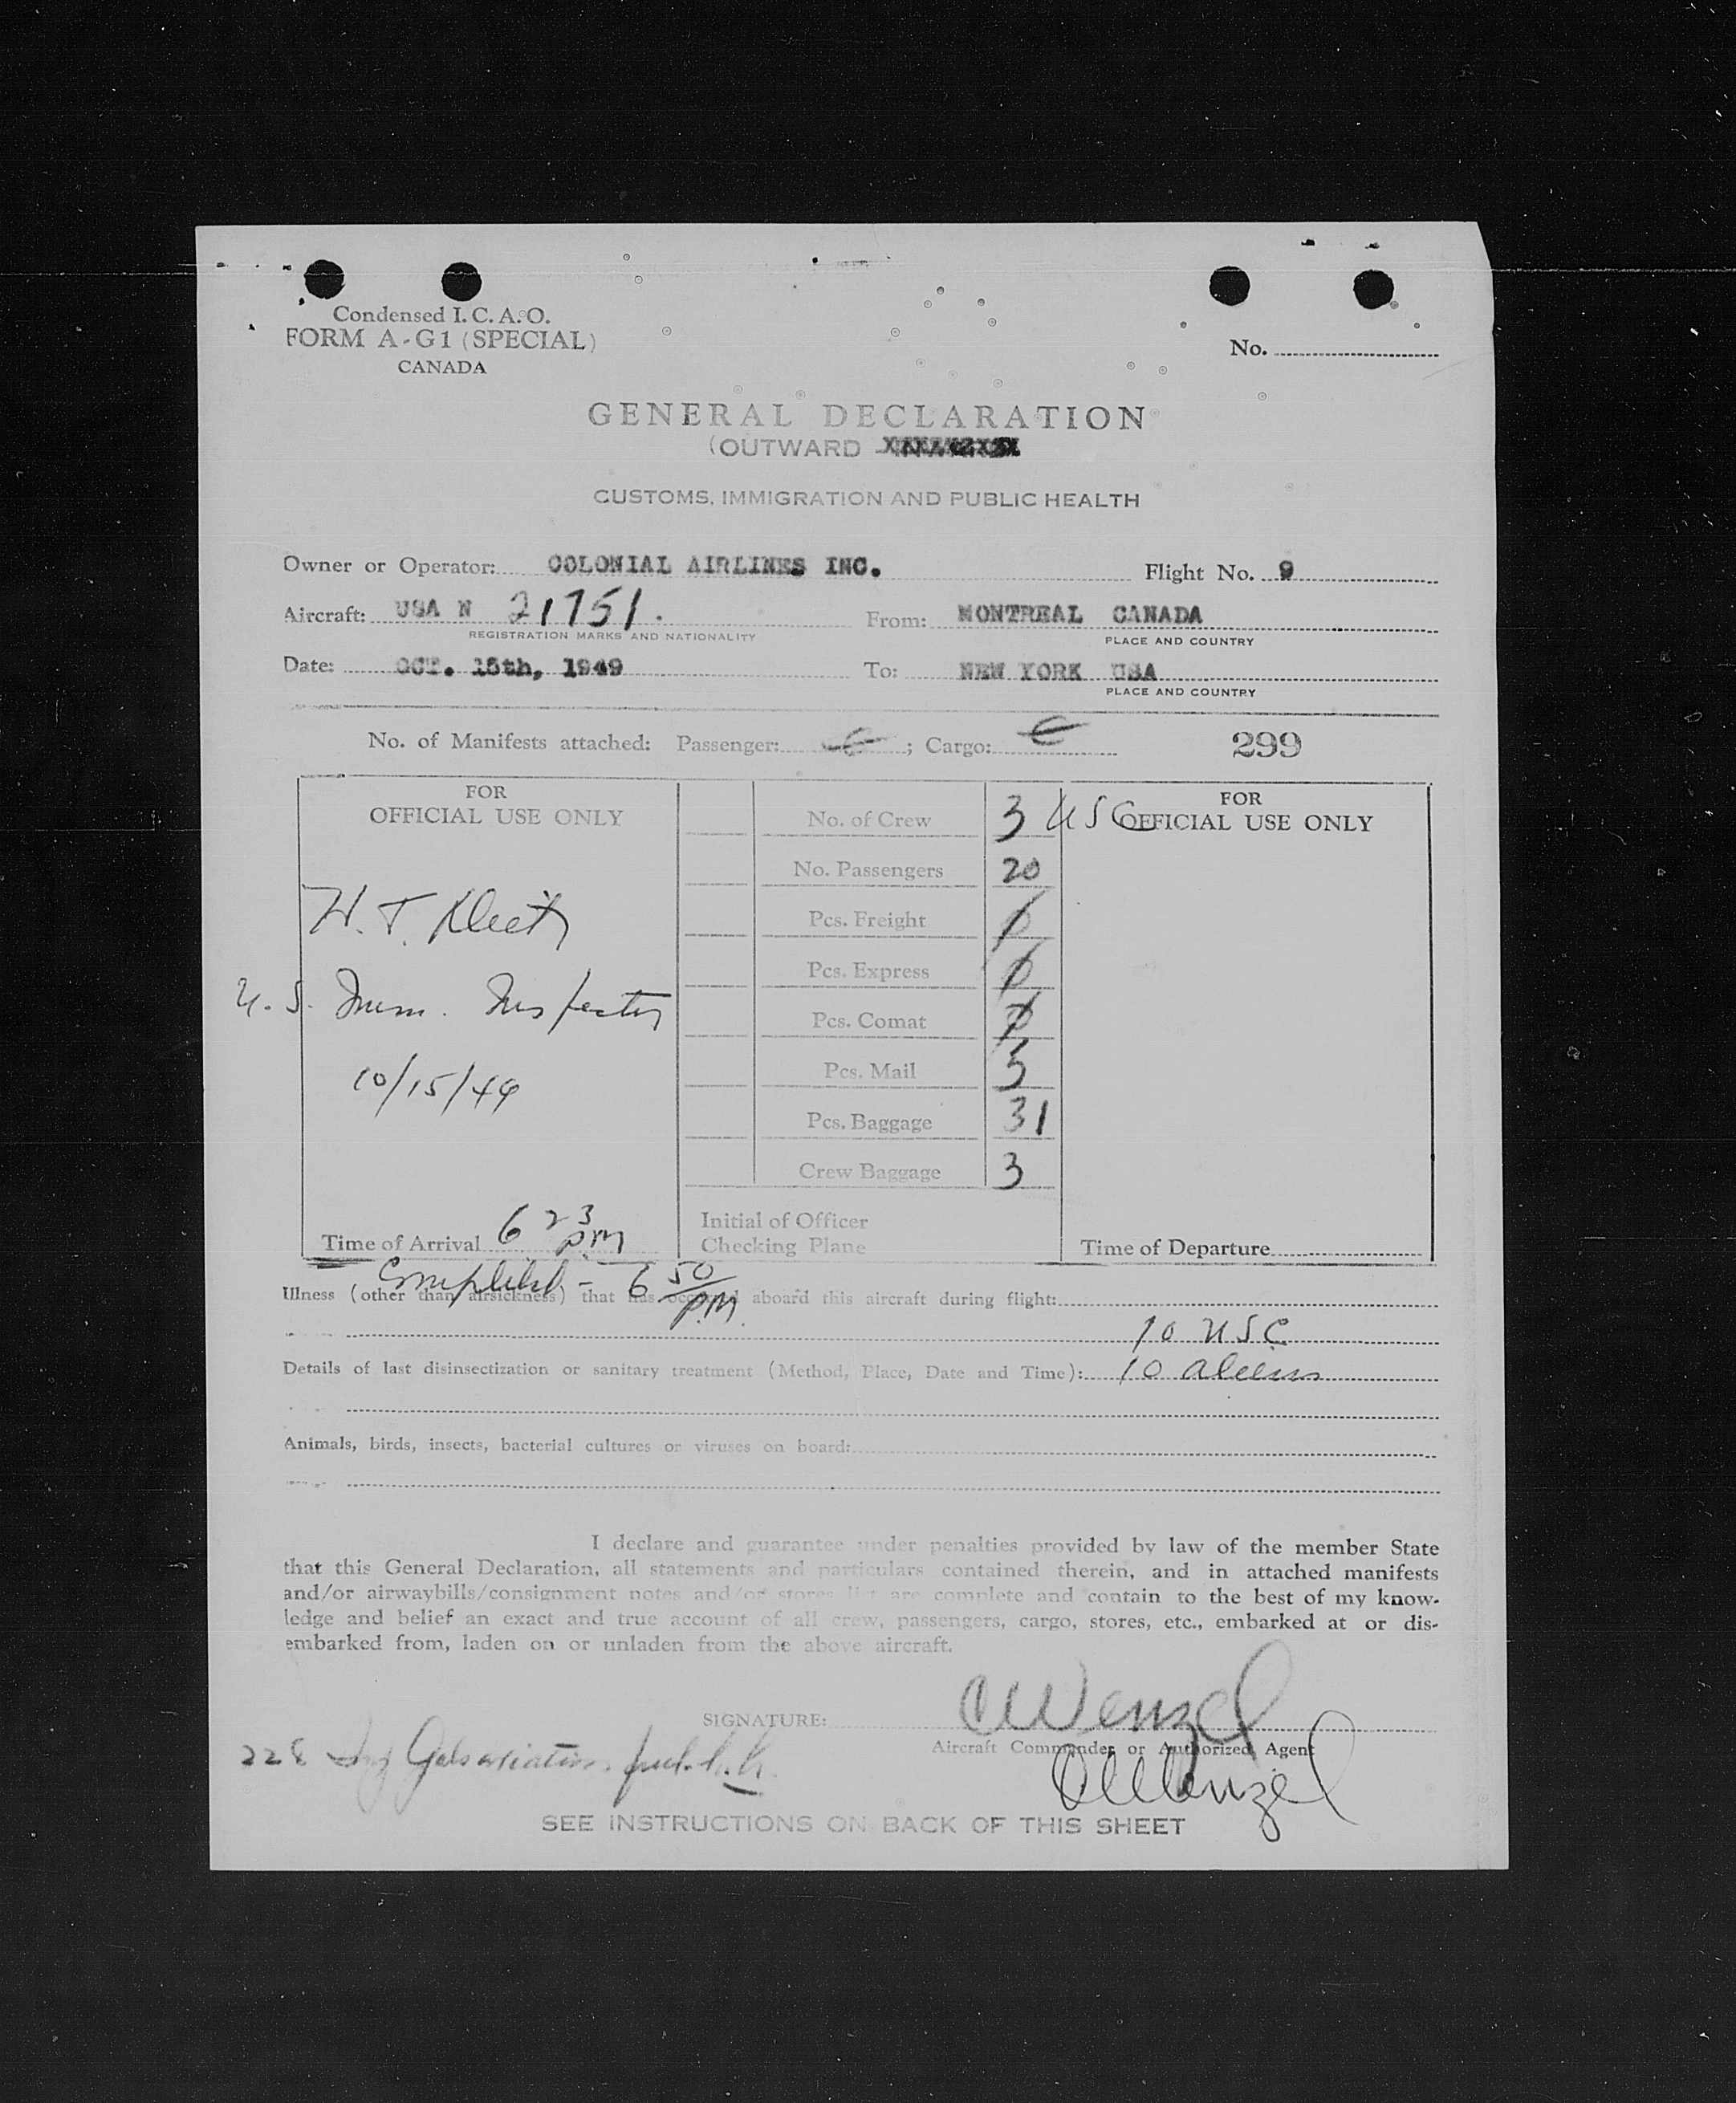 Condensed I. C. A. O.
FORM A-G1 (SPECIAL)
CANADA
No.
GENERAL DECLARATION
(OUTWARD
CUSTOMS, IMMIGRATION AND PUBLIC HEALTH
Owner or Operator: COLONIAL AIRLINES INC. Flight No. 9
Aircraft: USA N 21751. From: MONTREAL CANADA
REGISTRATION MARKS AND NATIONALITY PLACE AND COUNTRY
Date: OCT. 15th, 1949 To: NEW YORK USA
PLACE AND COUNTRY
No. of Manifests attached: Passenger: ; Cargo: 299
FOR
OFFICIAL USE ONLY
H. T.
U. S. Imm. Inspector
10/15/49
Time of Arrival 6 23 P.M
No. of Crew 3 USC
No. Passengers 20
Pcs. Freight 0
Pcs. Express 0
Pcs. Comat 0
Pcs. Mail 5
Pcs. Baggage 31
Crew Baggage 3
Initial of Officer
Checking Plane
FOR
OFFICIAL USE ONLY
Time of Departure
Completed - 6 50 P.M.
Illness (other than airsickness) that has occurred aboard this aircraft during flight:
10 USC
Details of last disinsectization or sanitary treatment (Method, Place, Date and Time): 10 aliens
Animals, birds, insects, bacterial cultures or viruses on board:
I declare and guarantee under penalties provided by law of the member State
that this General Declaration, all statements and particulars contained therein, and in attached manifests
and/or airwaybills/consignment notes and/or stores list are complete and contain to the best of my know-
ledge and belief an exact and true account of all crew, passengers, cargo, stores, etc., embarked at or dis-
embarked from, laden on or unladen from the above aircraft.
SIGNATURE: CWenzel
Aircraft Commander or Authorized Agent
228 Gals aviation
CWenzel
SEE INSTRUCTIONS ON BACK OF THIS SHEET